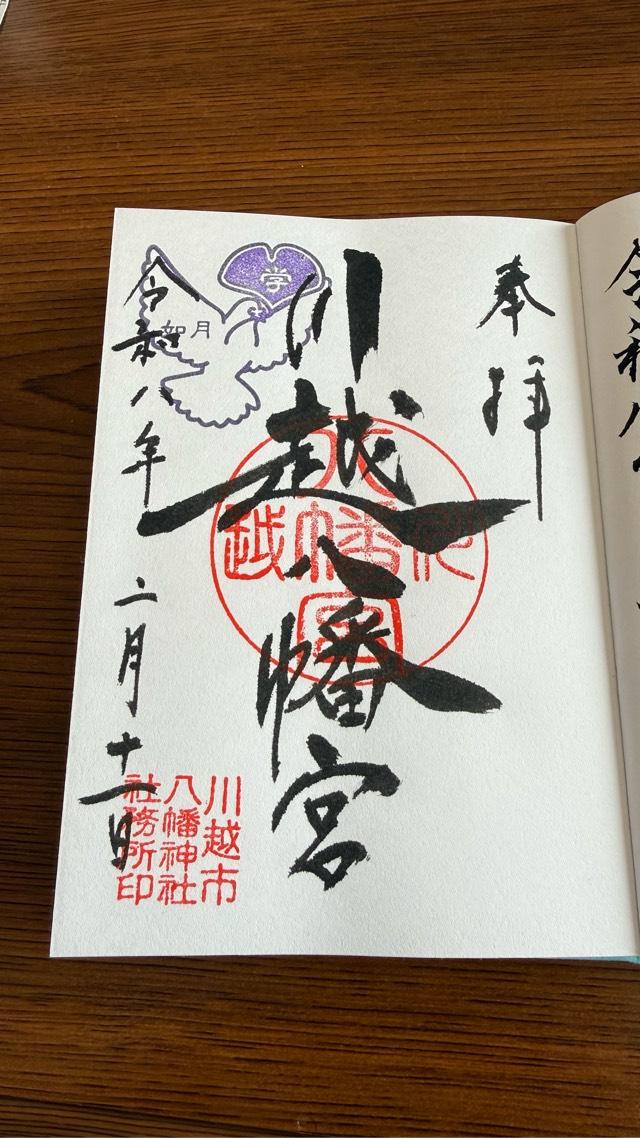 奉拝
川越八幡宮
令和八年二月十一日
学
如月
川越
八幡
宮
川越市
八幡神社
社務所印